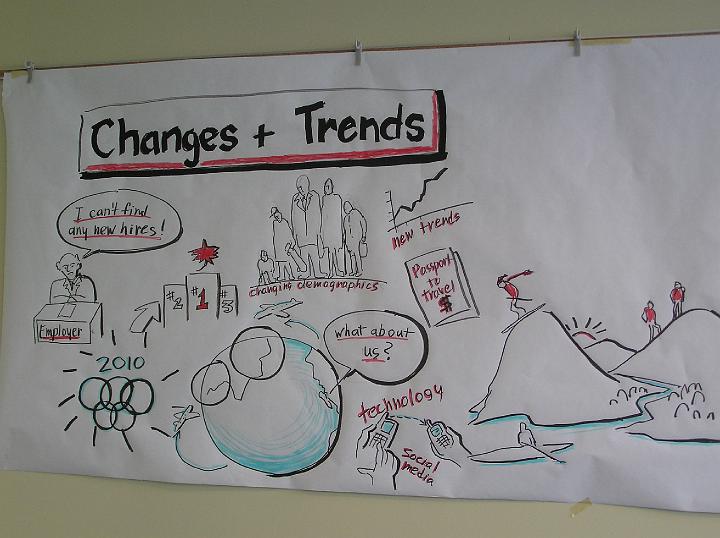 Changes + Trends
I can't find
any new hires!
Employer
#2
#1
#3
changing demographics
new trends
Passport
to
travel
$
2010
what about
us?
technology
social
media